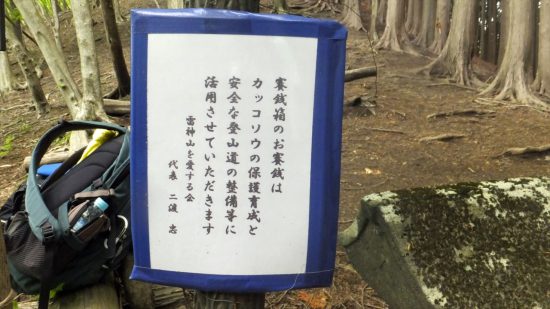 賽銭箱のお賽銭は
カッコソウの保護育成と
安全な登山道の整備等に
活用させていただきます
雷神山を愛する会
代表 二渡 忠